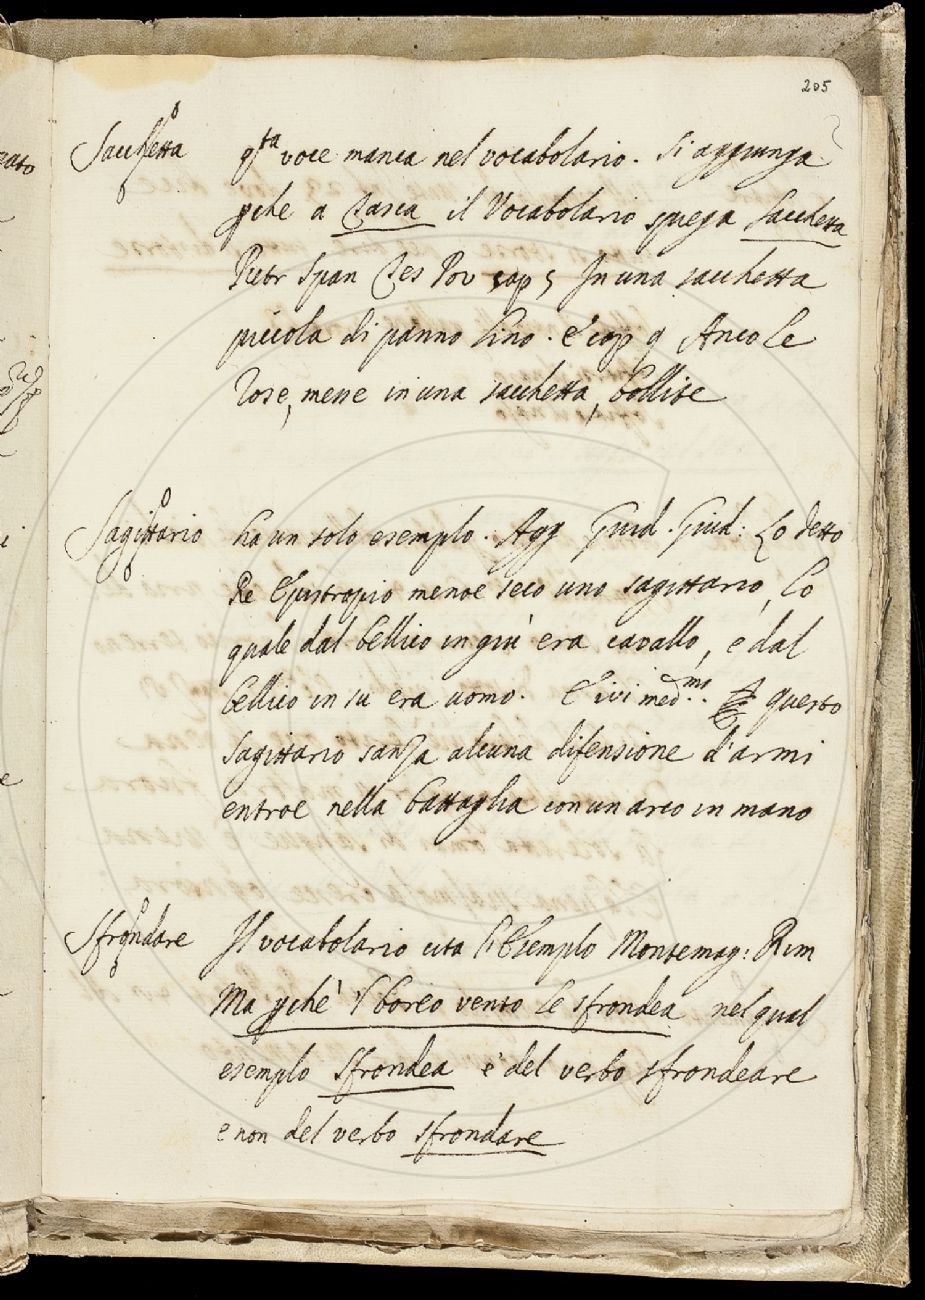 205
Sacchetta qta voce manca nel vocabolario. Si aggiunga
pche a Tasca il Vocabolario spiega sacchetta
Pietr Span Tes Pov cap 5 In una sacchetta
piccola di panno lino. E cap 9 Anco le
rose, mene in una sacchetta, bollite
Sagittario ha un solo esemplo. Agg Guid. Giud: Lo detto
Re Epistropio menoe seco uno sagittario, lo
quale dal bellico in giù era cavallo, e dal
bellico in su era uomo. E ivi med.mo questo
sagittario sanza alcuna difensione d'armi
entroe nella battaglia con un arco in mano
Sfrondare Il vocabolario cita l'Esemplo Montemag: Rim
Ma pchè 'l boreo vento le sfrondea nel qual
esemplo sfrondea è del verbo sfrondeare
e non del verbo sfrondare